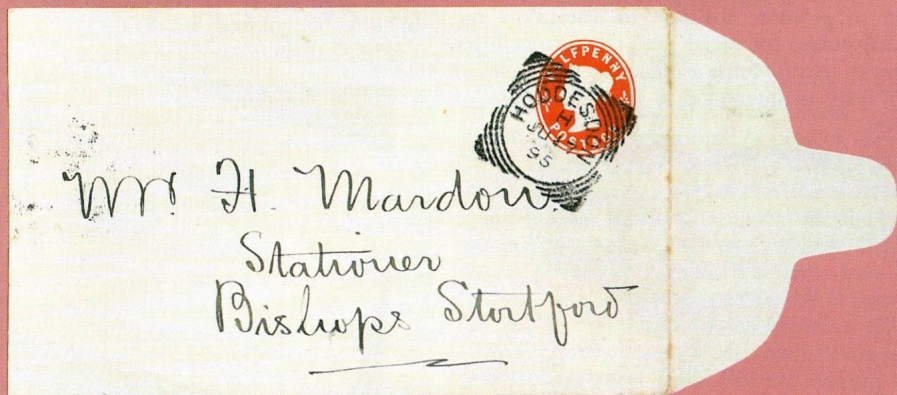 HALFPENNY
POSTAGE
HODDESDON
H
95
Mr. H. Mardon
Stationer
Bishops Stortford